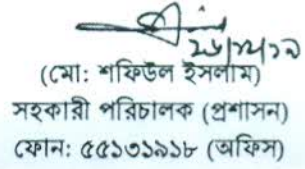 ২৬/১২/১৯
(মো: শফিউল ইসলাম)
সহকারী পরিচালক (প্রশাসন)
ফোন: ৫৫১৩১৯১৮ (অফিস)